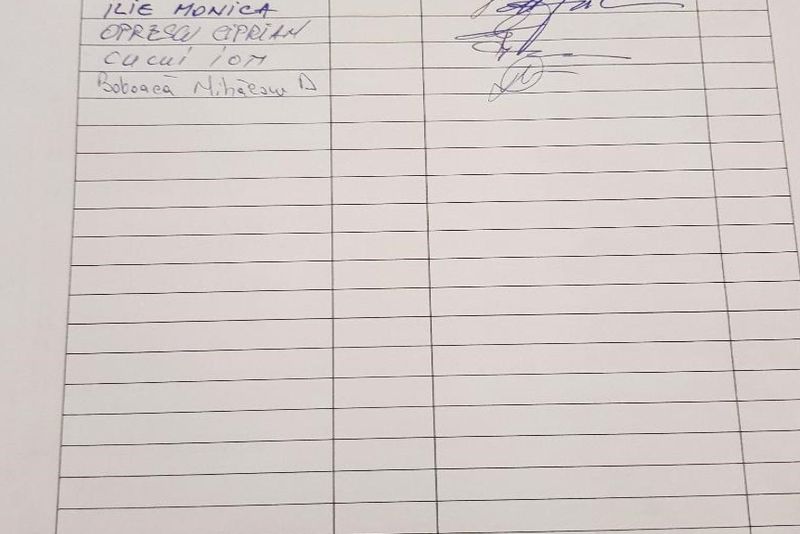 ILIE MONICA
OPRESCU CIPRIAN
CUCUI ION
Boboacă Mihăescu D